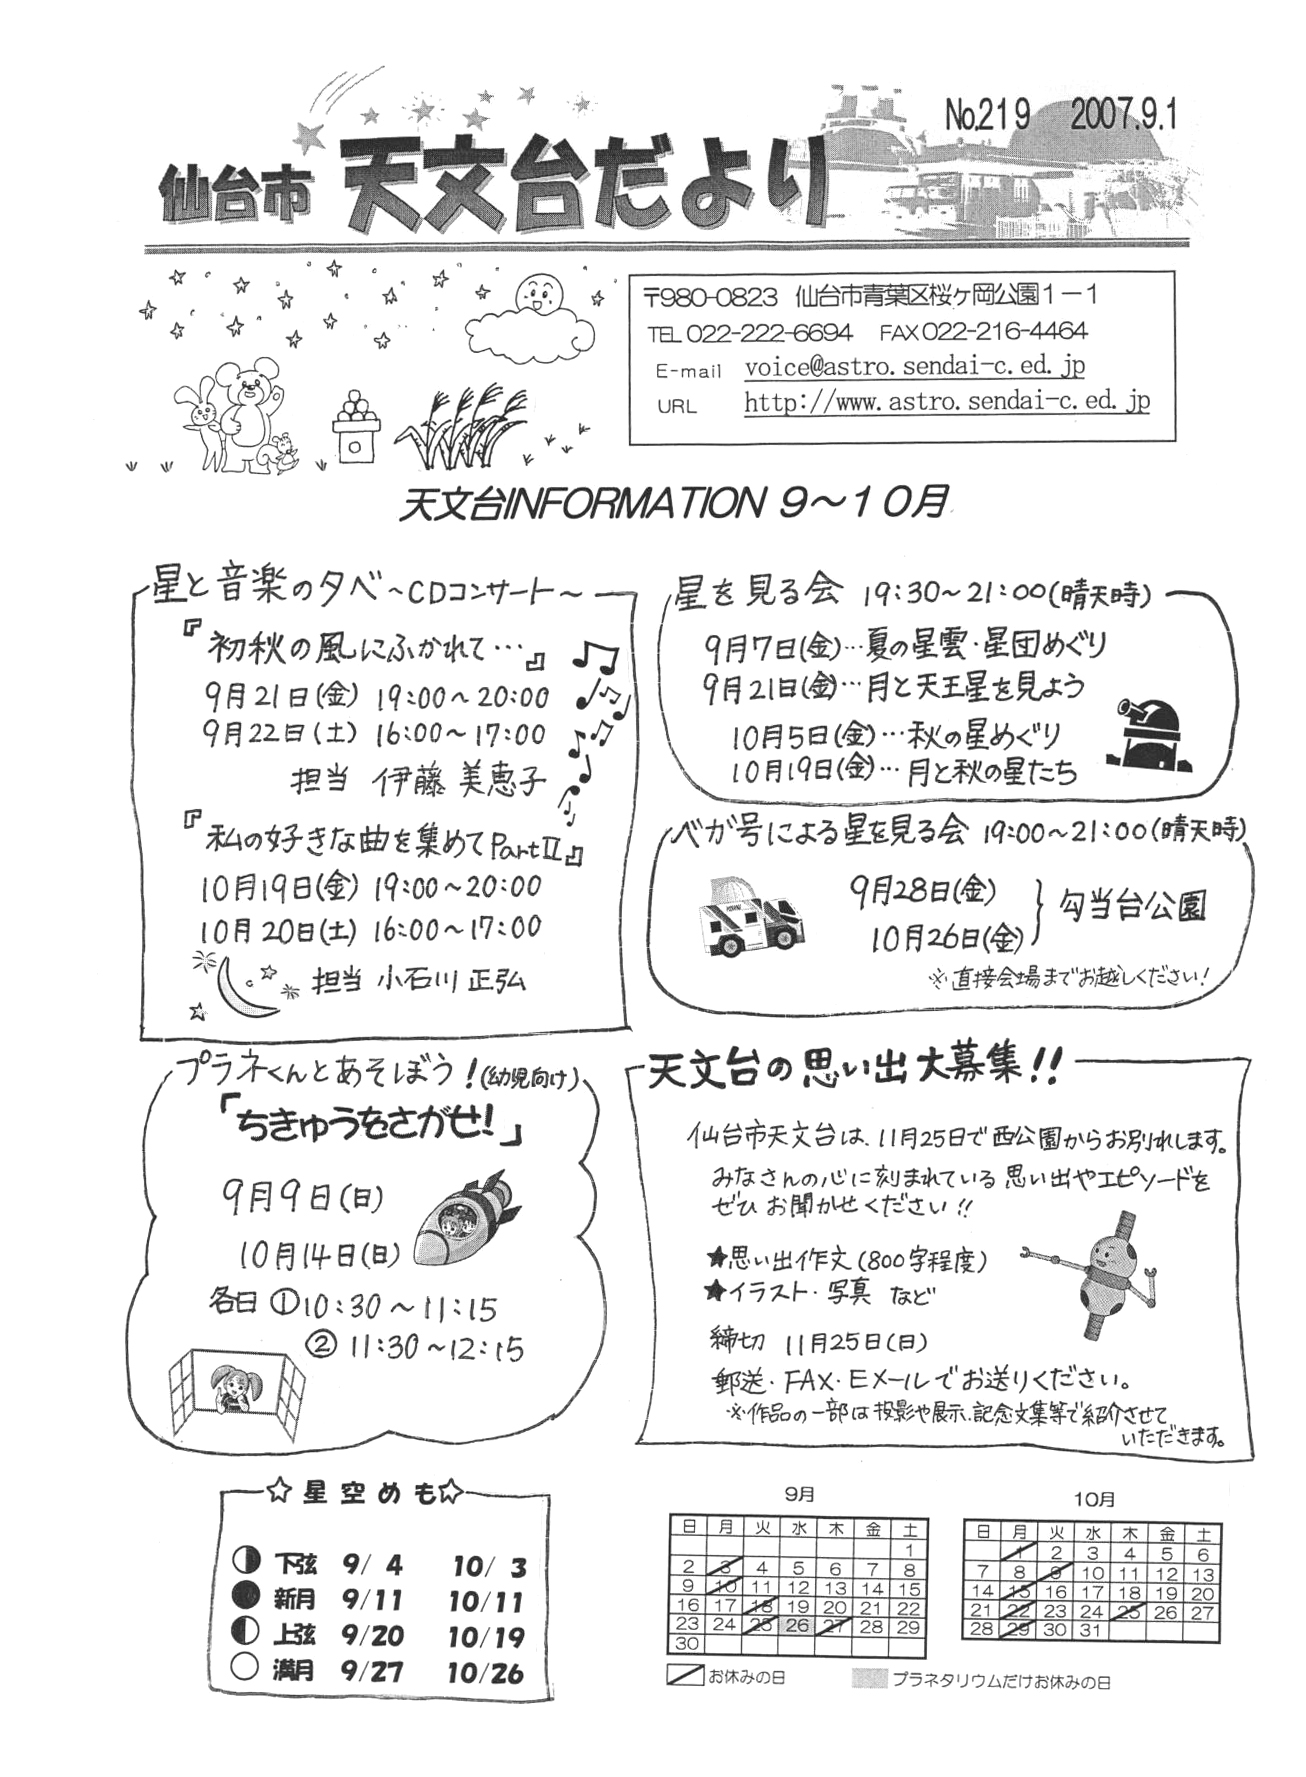 No.219 2007.9.1
仙台市 天文台だより
〒980-0823 仙台市青葉区桜ヶ岡公園1－1
TEL 022-222-6694 FAX 022-216-4464
E-mail voice@astro.sendai-c.ed.jp
URL http://www.astro.sendai-c.ed.jp
天文台INFORMATION 9～10月
星と音楽の夕べ～CDコンサート～
『初秋の風にふかれて…』
9月21日(金) 19:00～20:00
9月22日(土) 16:00～17:00
担当 伊藤 美恵子
『私の好きな曲を集めてPartⅡ』
10月19日(金) 19:00～20:00
10月20日(土) 16:00～17:00
担当 小石川 正弘
星を見る会 19:30～21:00(晴天時)
9月7日(金)…夏の星雲・星団めぐり
9月21日(金)…月と天王星を見よう
10月5日(金)…秋の星めぐり
10月19日(金)…月と秋の星たち
ベガ号による星を見る会 19:00～21:00(晴天時)
9月28日(金)
10月26日(金)
勾当台公園
※直接会場までお越しください!
プラネくんとあそぼう!(幼児向け)
「ちきゅうをさがせ!」
9月9日(日)
10月14日(日)
各日 ①10:30～11:15
②11:30～12:15
天文台の思い出大募集!!
仙台市天文台は、11月25日で西公園からお別れします。
みなさんの心に刻まれている思い出やエピソードを
ぜひお聞かせください!!
★思い出作文(800字程度)
★イラスト・写真 など
締切 11月25日(日)
郵送・FAX・Eメールでお送りください。
※作品の一部は投影や展示、記念文集等で紹介させて
いただきます。
☆星空めも☆
下弦 9/4 10/3
新月 9/11 10/11
上弦 9/20 10/19
満月 9/27 10/26
9月
日 月 火 水 木 金 土
1
2 3 4 5 6 7 8
9 10 11 12 13 14 15
16 17 18 19 20 21 22
23 24 25 26 27 28 29
30
お休みの日
プラネタリウムだけお休みの日
10月
日 月 火 水 木 金 土
1 2 3 4 5 6
7 8 9 10 11 12 13
14 15 16 17 18 19 20
21 22 23 24 25 26 27
28 29 30 31